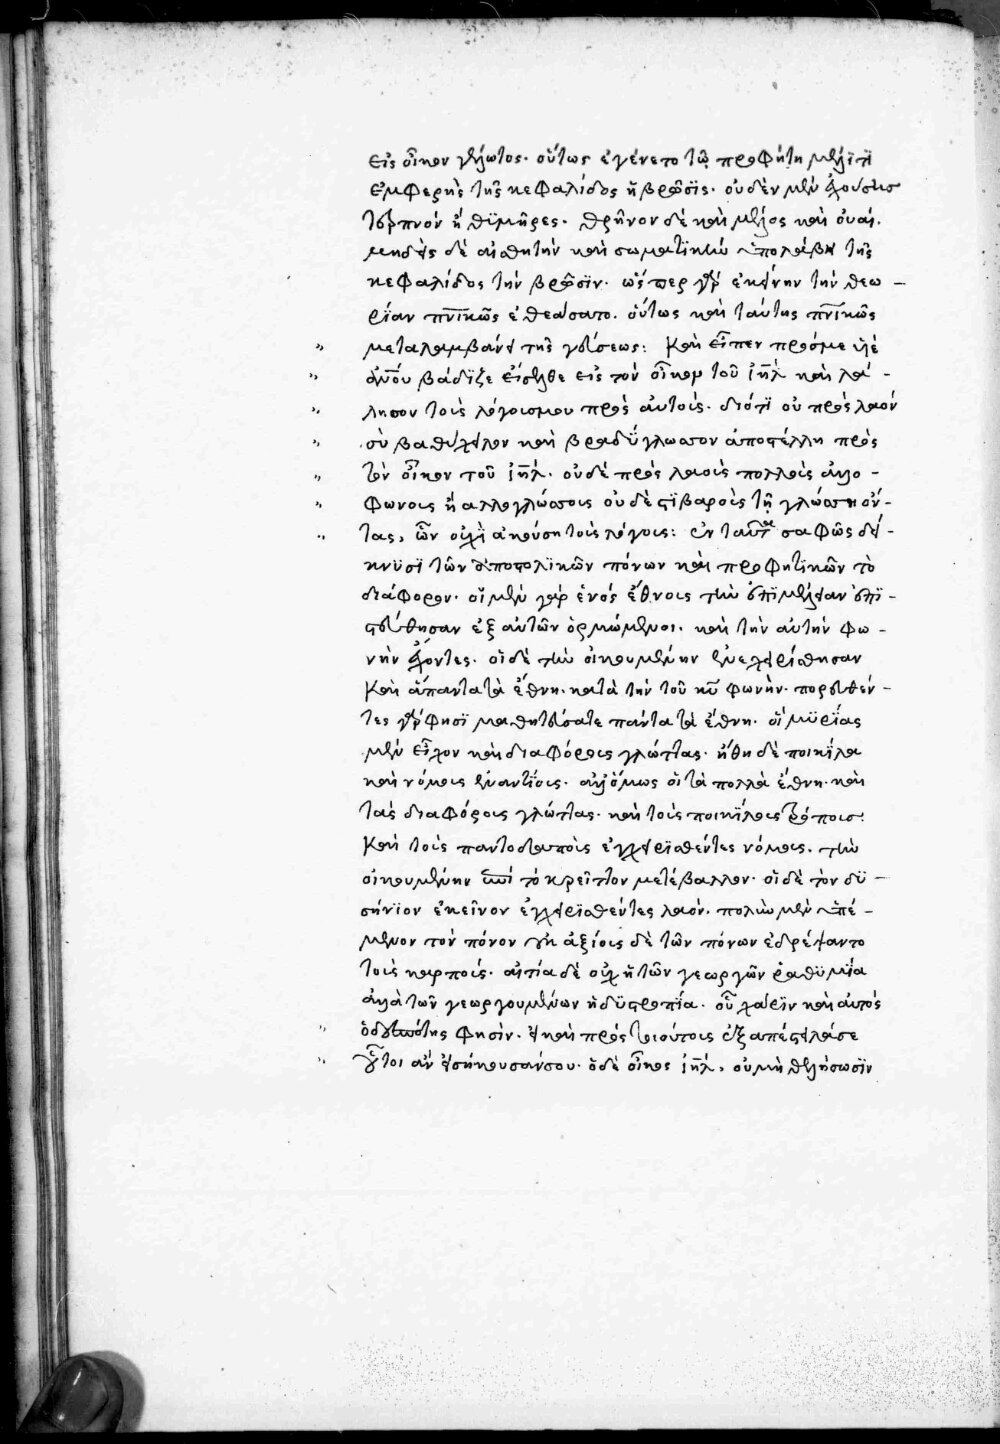 εἰς οἶκον γέλωτος· οὕτως ἐγένετο τῷ προφήτῃ μέλιτι
ἐμφερὴς τῆς κεφαλίδος ἡ βρῶσϊς· οὐδὲν μὲν ἐχούσης
τερπνὸν ἢ θϋμῆρες· θρῆνον δὲ καὶ μέλος καὶ οὐαί·
μηδεὶς δὲ αἰσθητὴν καὶ σωματϊκὴν ὑπολάβῃ τῆς
κεφαλίδος τὴν βρῶσϊν· ὥσπερ γὰρ ἐκείνην τὴν θεω-
ρίαν πνικῶς ἐθεάσατο· οὕτως καὶ ταύτης πνικῶς
μεταλαμβάνει τῆς γεύσεως: Καὶ εἶπεν πρόσμε υἱὲ
ἀνου βάδϊζε εἴσελθε εἰς τὸν οἶκομ τοῦ ιηλ καὶ λά-
λησον τοὺς λόγουσμου πρὸς αὐτούς· διότϊ οὐ πρὸς λαὸν
σὺ βαθύχειλον καὶ βραδΰγλωσσον ἀποστέλλη πρὸς
τὸν οἶκον τοῦ ιηλ· οὐδὲ πρὸς λαοὺς πολλοὺς ἀλλο-
φώνους ἢ αλλογλώσσους οὐδὲ στϊβαροὺς τῇ γλώσσῃ ὄν-
τας, ὧν οὐχὶ ἀκούση τοὺς λόγους: ἐνταῦθα σαφῶς δεί-
κνϋσϊ τῶν ἀποστολϊκῶν πόνων καὶ προφητϊκῶν τὸ
διάφορον· οἱ μὲν γὰρ ἑνὸς ἔθνους τὴν ἐπϊμέλειαν ἐπϊ-
στεύθησαν ἐξ αὐτῶν ὁρμώμενοι· καὶ τὴν αὐτὴν φω-
νὴν ἔχοντες· οἱ δὲ τὴν οἰκουμένην ἐνεχειρίσθησαν
Καὶ ἅπαντα τὰ ἔθνη· κατὰ τὴν τοῦ κυ φωνὴν· πορευθέν-
τες γάρ φησϊ μαθητεύσατε πάντα τὰ ἔθνη· οἳ μϋρίας
μὲν εἶχον καὶ διαφόρους γλώττας· ἤθη δὲ ποικίλα
καὶ νόμους ἐναντίους· ἀλλ᾽ ὅμως οἱ τὰ πολλὰ ἔθνη· καὶ
τὰς διαφόρους γλώττας· καὶ τοὺς ποικίλους τρόπους·
Καὶ τοὺς παντοδαποὺς ἐγχειρϊσθέντες νόμους· τὴν
οἰκουμένην ἐπὶ τὸ κρεῖττον μετέβαλλον· οἱ δὲ τὸν δϋ-
σήνϊον ἐκεῖνον ἐγχειρϊσθέντες λαὸν· πολὺν μὲν ὑπέ-
μενον τὸν πόνον οὐκ ἀξίους δὲ τῶν πόνων ἐδρέψαντο
τοὺς καρπούς· αἰτία δὲ οὐχ ἡ τῶν γεωργῶν ῥαθϋμία
ἀλλὰ τῶν γεωργουμένων ἡ δϋστροπία· οὗ χάρϊν καὶ αὐτὸς
ὁ δεσπότης φησὶν· εἰ καὶ πρὸς τοιούτους ἐξαπέστειλάσε
οὗτοι ἂν εἰσήκουσάν σου· ὁ δὲ οἶκος ιηλ, οὐ μὴ θελήσωσϊν